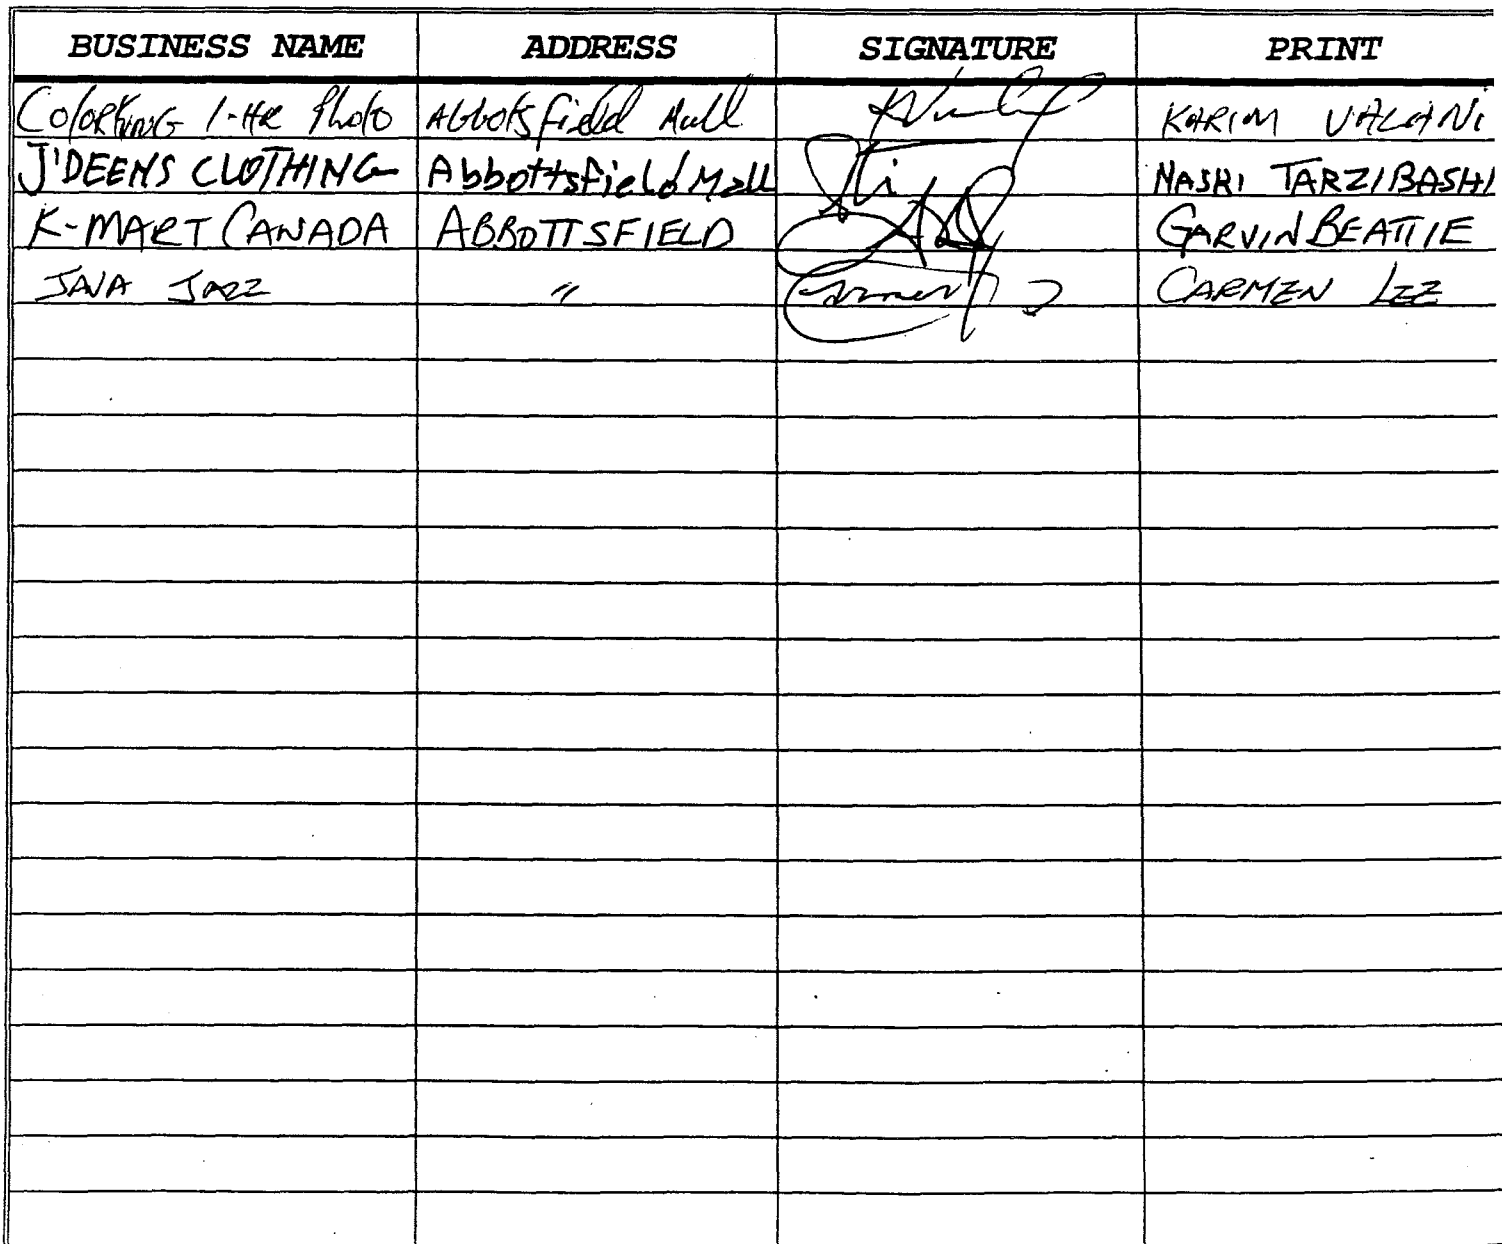 BUSINESS NAME ADDRESS SIGNATURE PRINT
ColorKing 1-HR Photo Abbotsfield Mall KARIM VALANI
J'DEENS CLOTHING Abbottsfield Mall NASHI TARZIBASHI
K-MART CANADA ABBOTTSFIELD GARVIN BEATTIE
JAVA JAZZ " CARMEN LEE